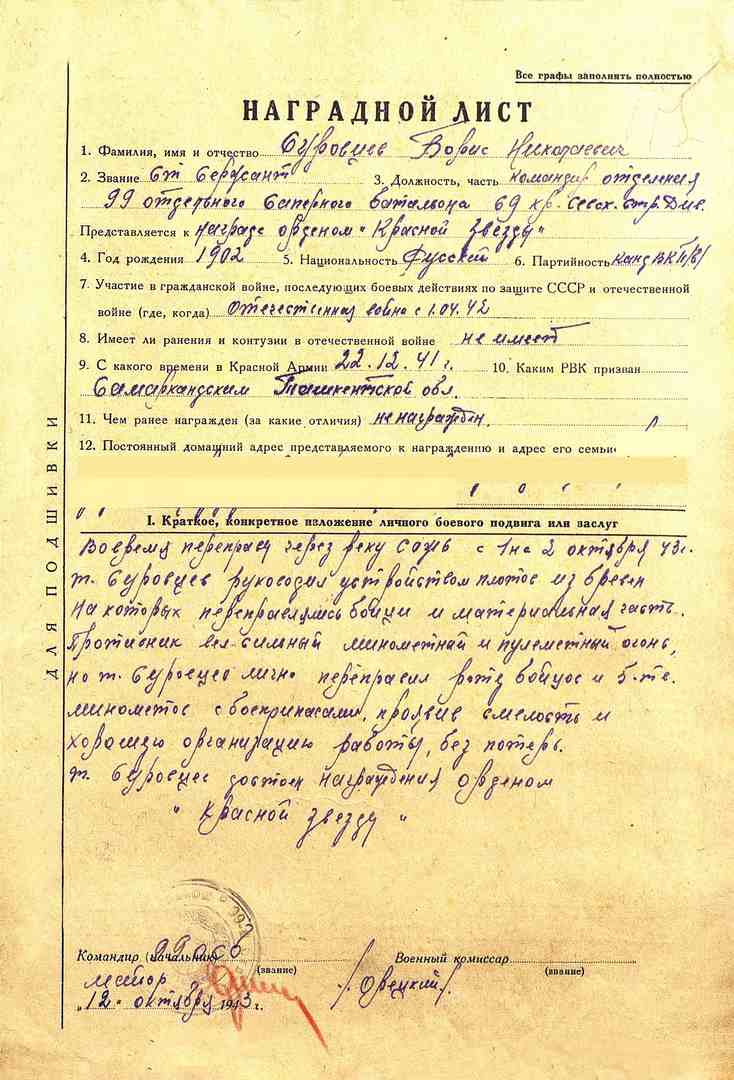 Все графы заполнять полностью
НАГРАДНОЙ ЛИСТ
1. Фамилия, имя и отчество Суровцев Борис Николаевич
2. Звание Ст Сержант 3. Должность, часть командир отделения
99 отдельного саперного батальона 69 кр. Севск. Стр. Див.
Представляется к награде орденом "Красной звезды"
4. Год рождения 1902 5. Национальность Русский 6. Партийность канд ВКП/б/
7. Участие в гражданской войне, последующих боевых действиях по защите СССР и отечественной
войне (где, когда) Отечественная война с 1.04.42
8. Имеет ли ранения и контузии в отечественной войне не имеет
9. С какого времени в Красной Армии 22.12.41 г. 10. Каким РВК призван
Самаркандским Ташкентской обл.
11. Чем ранее награжден (за какие отличия) не награжден.
12. Постоянный домашний адрес представляемого к награждению и адрес его семьи
I. Краткое, конкретное изложение личного боевого подвига или заслуг
Вовремя переправы через реку Сожь с 1 на 2 октября 43 г.
т. Суровцев руководил устройством плотов из бревен
на которых переправлялись бойцы и материальная часть.
Противник вел сильный минометный и пулеметный огонь,
но т. Суровцев лично переправил роту бойцов и 5-ть
минометов с боеприпасами, проявив смелость и
хорошую организацию работы, без потерь.
т. Суровцев достоин награждения орденом
"Красной звезды"
ДЛЯ ПОДШИВКИ
Командир (начальник) 99 ОСБ Военный комиссар
(звание) (звание)
майор /. Овецкий /.
"12" октября 1943 г.